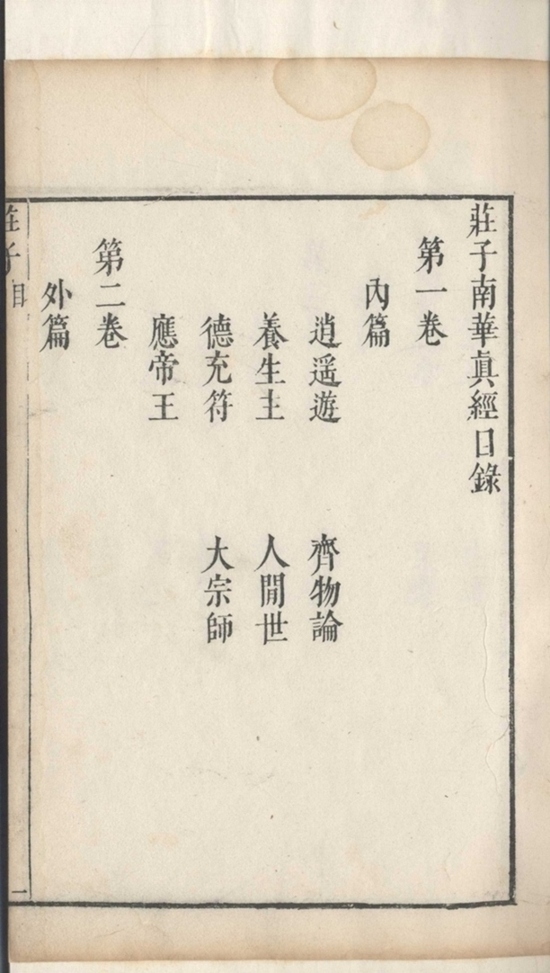 莊子南華眞經目錄
第一卷
內篇
逍遥遊 齊物論
養生主 人閒世
德充符 大宗師
應帝王
第二卷
外篇
莊子目
一